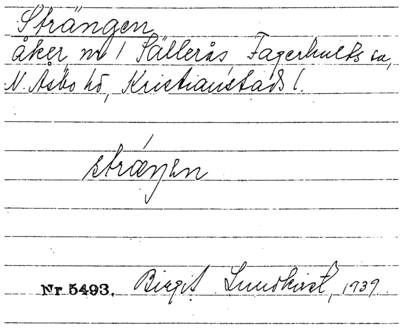 Strängen
åker nr 1 Sällerås Fagerhults sn,
N. Åsbo hd, Kristianstads l.
stræŋen
Nr 5493. Birgit Lundkvist, 1939.